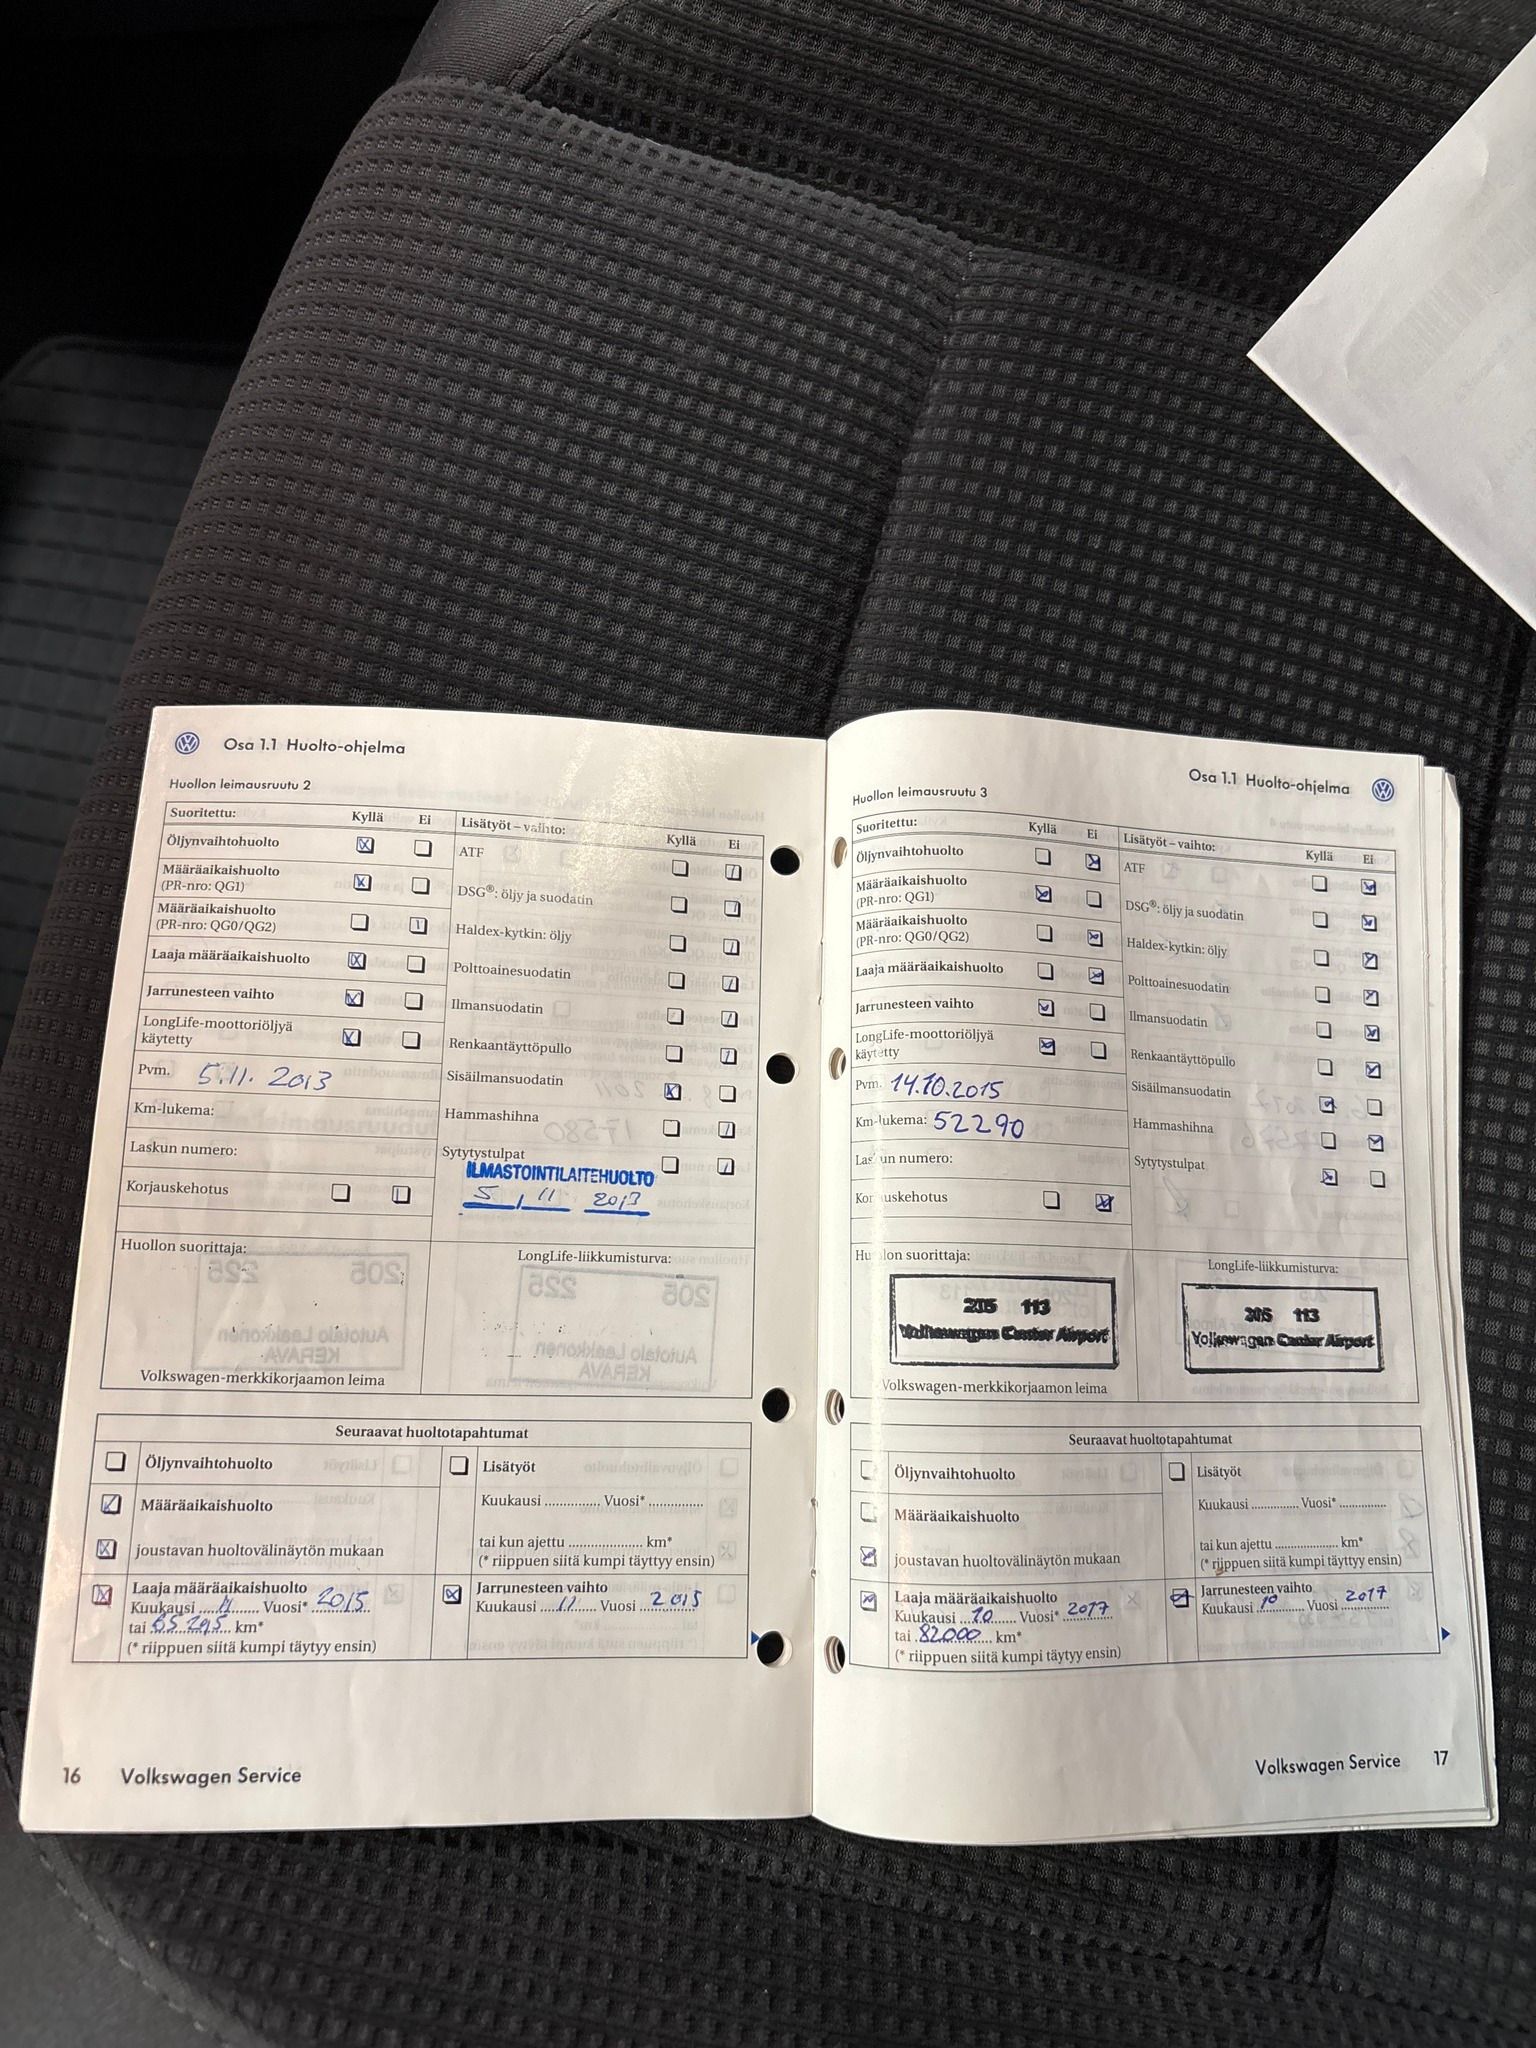 Osa 1.1 Huolto-ohjelma
Huollon leimausruutu 2
Suoritettu: Kyllä Ei
Öljynvaihtohuolto
Määräaikaishuolto
(PR-nro: QG1)
Määräaikaishuolto
(PR-nro: QG0/QG2)
Laaja määräaikaishuolto
Jarrunesteen vaihto
LongLife-moottoriöljyä
käytetty
Pvm. 5.11. 2013
Km-lukema:
Laskun numero:
Korjauskehotus
Lisätyöt – vaihto: Kyllä Ei
ATF
DSG®: öljy ja suodatin
Haldex-kytkin: öljy
Polttoainesuodatin
Ilmansuodatin
Renkaantäyttöpullo
Sisäilmansuodatin
Hammashihna
Sytytystulpat
ILMASTOINTILAITEHUOLTO
5 / 11 2013
Huollon suorittaja:
Volkswagen-merkkikorjaamon leima
LongLife-liikkumisturva:
Seuraavat huoltotapahtumat
Öljynvaihtohuolto
Määräaikaishuolto
joustavan huoltovälinäytön mukaan
Laaja määräaikaishuolto
Kuukausi ..11...... Vuosi* 2015
tai km*
(* riippuen siitä kumpi täytyy ensin)
Lisätyöt
Kuukausi ............... Vuosi* ...............
tai kun ajettu ..................... km*
(* riippuen siitä kumpi täytyy ensin)
Jarrunesteen vaihto
Kuukausi ...11...... Vuosi 2015
16 Volkswagen Service
Osa 1.1 Huolto-ohjelma
Huollon leimausruutu 3
Suoritettu: Kyllä Ei
Öljynvaihtohuolto
Määräaikaishuolto
(PR-nro: QG1)
Määräaikaishuolto
(PR-nro: QG0/QG2)
Laaja määräaikaishuolto
Jarrunesteen vaihto
LongLife-moottoriöljyä
käytetty
Pvm. 14.10.2015
Km-lukema: 52290
Laskun numero:
Korjauskehotus
Lisätyöt – vaihto: Kyllä Ei
ATF
DSG®: öljy ja suodatin
Haldex-kytkin: öljy
Polttoainesuodatin
Ilmansuodatin
Renkaantäyttöpullo
Sisäilmansuodatin
Hammashihna
Sytytystulpat
Huollon suorittaja:
205 113
Volkswagen Center Airport
Volkswagen-merkkikorjaamon leima
LongLife-liikkumisturva:
205 113
Volkswagen Center Airport
Seuraavat huoltotapahtumat
Öljynvaihtohuolto
Määräaikaishuolto
joustavan huoltovälinäytön mukaan
Laaja määräaikaishuolto
Kuukausi ...10...... Vuosi* 2017
tai .82000... km*
(* riippuen siitä kumpi täytyy ensin)
Lisätyöt
Kuukausi ............... Vuosi* ...............
tai kun ajettu ..................... km*
(* riippuen siitä kumpi täytyy ensin)
Jarrunesteen vaihto
Kuukausi ..10........ Vuosi 2017
Volkswagen Service 17